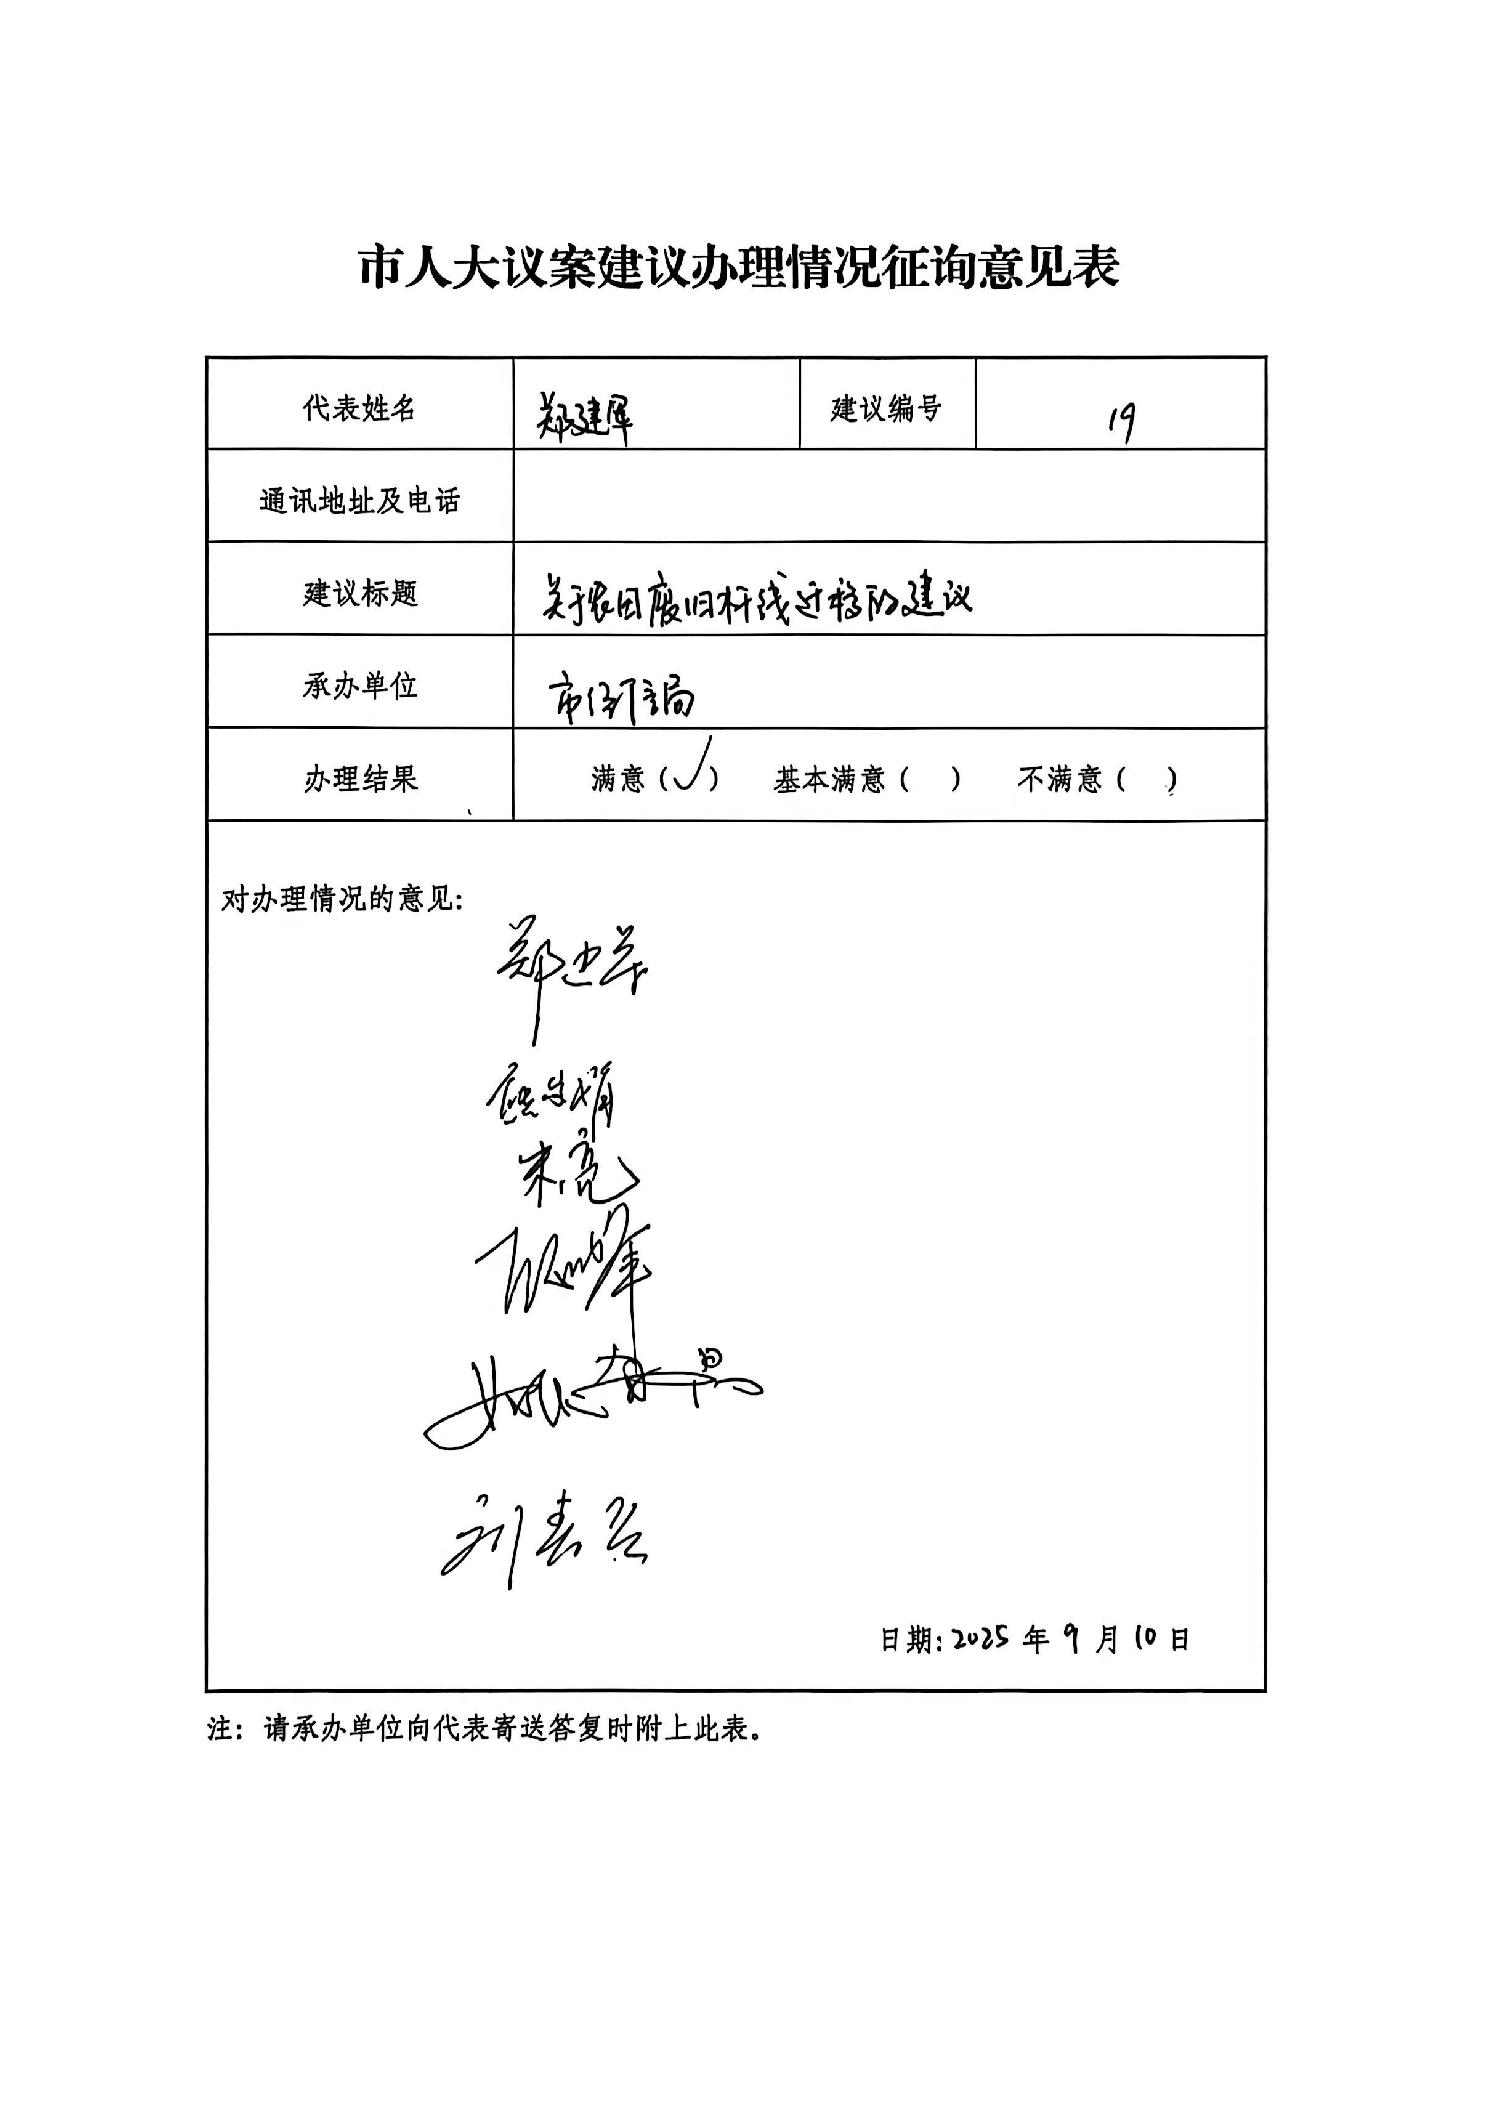 市人大议案建议办理情况征询意见表
代表姓名 郑建军 建议编号 19
通讯地址及电话
建议标题 关于农田废旧杆线迁移的建议
承办单位 市住建局
办理结果 满意（✓） 基本满意（ ） 不满意（ ）
对办理情况的意见:
郑建军
朱亮
日期: 2025 年 9 月 10 日
注：请承办单位向代表寄送答复时附上此表。